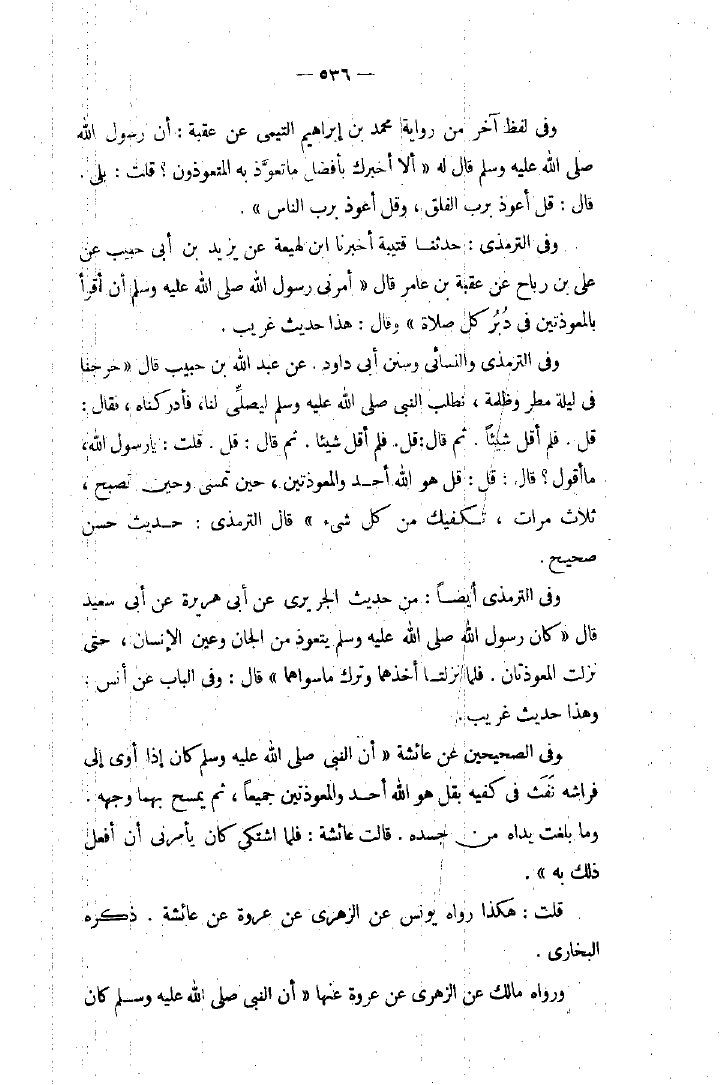 — ٥٣٦ —
وفى لفظ آخر من رواية محمد بن إبراهيم التيمى عن عقبة : أن رسول الله
صلى الله عليه وسلم قال له « ألا أخبرك بأفضل ماتعوَّذ به المتعوذون ؟ قلت : بلى .
قال : قل أعوذ برب الفلق ، وقل أعوذ برب الناس » .
وفى الترمذى : حدثنـا قتيبة أخبرنا ابن لهيعة عن يزيد بن أبى حبيب عن
على بن رباح عن عقبة بن عامر قال « أمرنى رسول الله صلى الله عليه وسلم أن أقرأ
بالمعوذتين فى دُبُر كل صلاة » وقال : هذا حديث غريب .
وفى الترمذى والنسائى وسنن أبى داود . عن عبد الله بن حبيب قال « خرجنا
فى ليلة مطر وظلمة ، نطلب النبى صلى الله عليه وسلم ليصلِّى لنا، فأدركناه ، فقال :
قل . فلم أقل شيئاً . ثم قال: قل. فلم أقل شيئا . ثم قال : قل . قلت : يارسول الله،
ماأقول ؟ قال : قل : قل هو الله أحـد والمعوذتين ، حين تمسى وحين تصبح ،
ثلاث مرات ، تـكفيك من كل شىء » قال الترمذى : حـديث حسن
صحيح .
وفى الترمذى أيضـاً : من حديث الجريرى عن أبى هريرة عن أبى سعيد
قال « كان رسول الله صلى الله عليه وسلم يتعوذ من الجان وعين الإنسان ، حتى
نزلت المعوذتان . فلما نزلتـا أخذهما وترك ماسواهما » قال : وفى الباب عن أنس :
وهذا حديث غريب .
وفى الصحيحين عن عائشة « أن النبى صلى الله عليه وسلم كان إذا أوى إلى
فراشه نَفَث فى كفيه بقل هو الله أحـد والمعوذتين جميعاً ، ثم يمسح بهما وجهه .
وما بلغت يداه من جسده . قالت عائشة : فلما اشتكى كان يأمرنى أن أفعل
ذلك به » .
قلت : هكذا رواه يونس عن الزهرى عن عروة عن عائشة . ذكـره
البخارى .
ورواه مالك عن الزهرى عن عروة عنها « أن النبى صلى الله عليه وسـلم كان